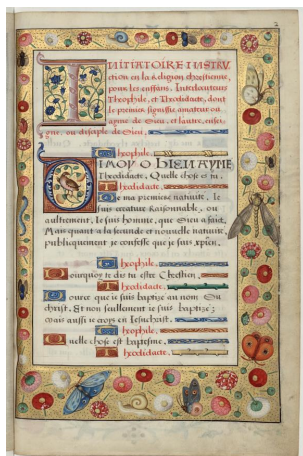 INITIATOIRE INSTRU
ction en la religion chrestienne,
pour les enffans, Interlocuteurs
Theophile, et Theodidacte, dont
le premier signifie amateur ou
ayme de Dieu, et l'autre, ensei,
gne, ou disciple de Dieu,
Theophile,
DI MOY O BIEN AYME
Theodidacte, Quelle chose es tu,
Theodidacte,
De ma premiere nativite, Je
suis creature Raisonnable, ou
aultrement, Je suis homme, que Dieu a faict,
Mais quant a la seconde et nouvelle nativite,
publiquement je confesse que je suis xpien,
Theophile,
Pourquoy te dis tu estre Chrestien,
Theodidacte,
Pource que je suis baptize au nom Du
christ, Et non seullement je suis baptize;
mais aussi je croys en Jesuchrist,
Theophile,
Quelle chose est baptesme,
Theodidacte,